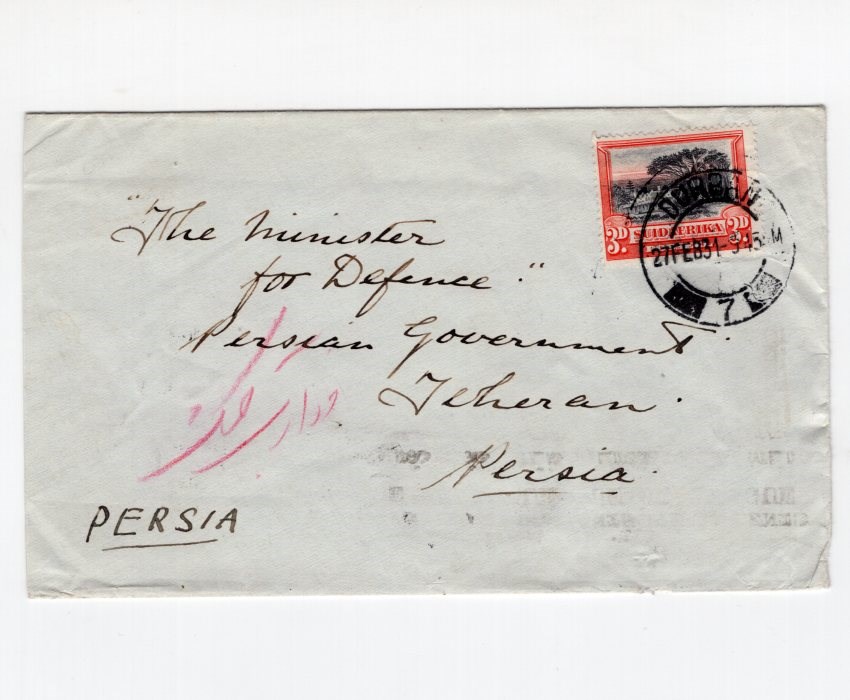 3D. SUIDAFRIKA 3D.
DURBAN
27 FEB 31 - 9 15 M
7
"The Minister
for Defence."
Persian Government
Teheran.
Persia.
وزارت جنگ
PERSIA